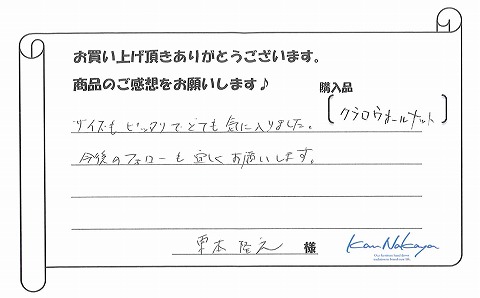 お買い上げ頂きありがとうございます。
商品のご感想をお願いします♪
購入品
クラロウォールナット
サイズもピッタリでとても気に入りました。
今後のフォローも宜しくお願いします。
栗本 隆之 様
Kan Nakaya